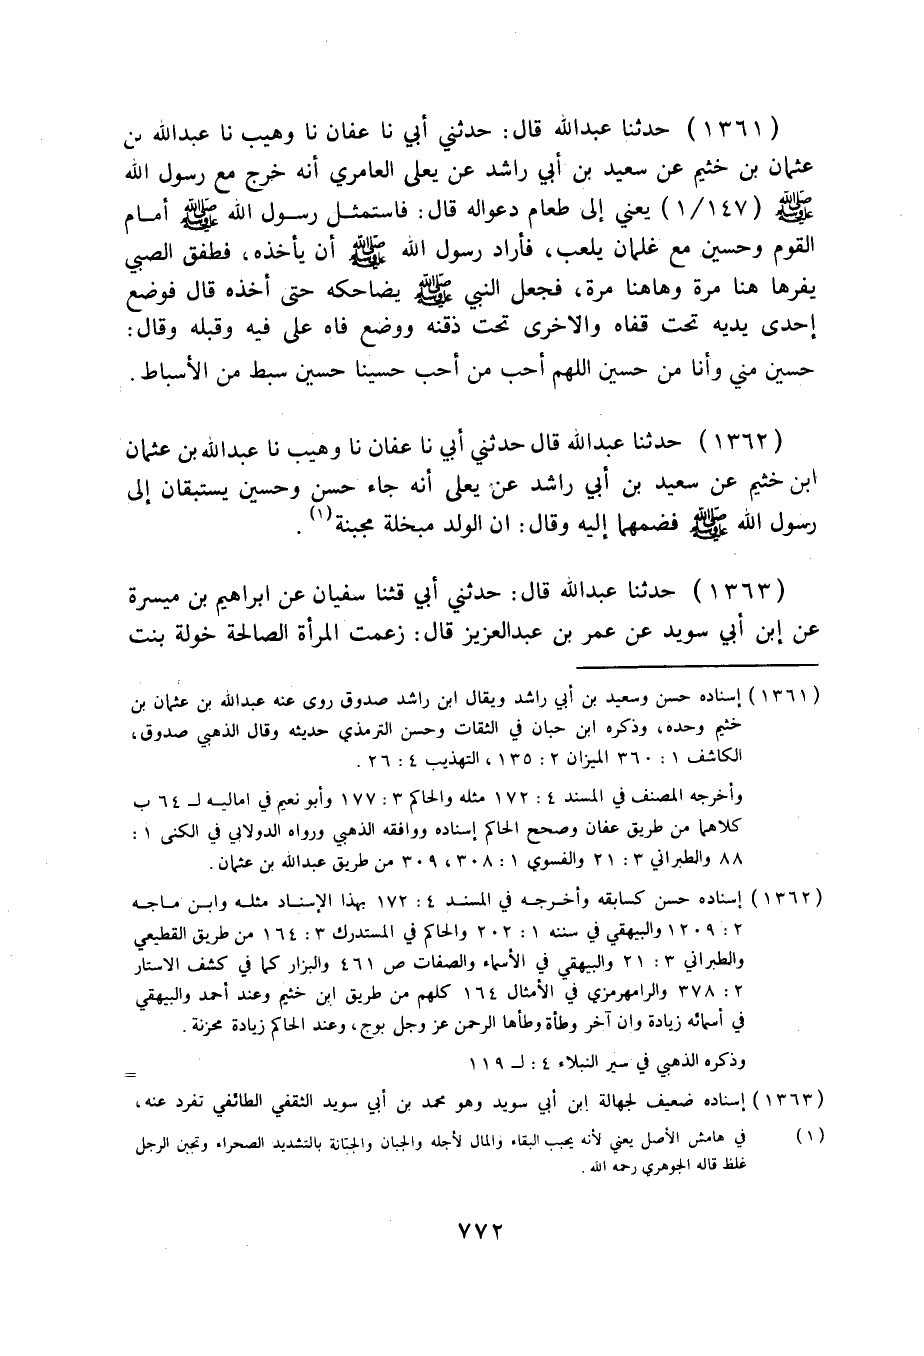 (١٣٦١) حدثنا عبدالله قال: حدثني أبي نا عفان نا وهيب نا عبدالله بن
عثمان بن خثيم عن سعيد بن أبي راشد عن يعلى العامري أنه خرج مع رسول الله
ﷺ (١/١٤٧) يعني إلى طعام دعواله قال: فاستمثل رسول الله ﷺ أمام
القوم وحسين مع غلمان يلعب، فأراد رسول الله ﷺ أن يأخذه، فطفق الصبي
يفرها هنا مرة وهاهنا مرة، فجعل النبي ﷺ يضاحكه حتى أخذه قال فوضع
إحدى يديه تحت قفاه والاخرى تحت ذقنه ووضع فاه على فيه وقبله وقال:
حسين مني وأنا من حسين اللهم أحب من أحب حسينا حسين سبط من الأسباط.
(١٣٦٢) حدثنا عبدالله قال حدثني أبي نا عفان نا وهيب نا عبدالله بن عثمان
ابن خثيم عن سعيد بن أبي راشد عن يعلى أنه جاء حسن وحسين يستبقان إلى
رسول الله ﷺ فضمهما إليه وقال: ان الولد مبخلة مجبنة(١).
(١٣٦٣) حدثنا عبدالله قال: حدثني أبي قثنا سفيان عن ابراهيم بن ميسرة
عن إبن أبي سويد عن عمر بن عبدالعزيز قال: زعمت المرأة الصالحة خولة بنت
(١٣٦١) إسناده حسن وسعيد بن أبي راشد ويقال ابن راشد صدوق روى عنه عبدالله بن عثمان بن
خثيم وحده، وذكره ابن حبان في الثقات وحسن الترمذي حديثه وقال الذهبي صدوق،
الكاشف ١: ٣٦٠ الميزان ٢: ١٣٥، التهذيب ٤: ٢٦.
وأخرجه المصنف في المسند ٤: ١٧٢ مثله والحاكم ٣: ١٧٧ وأبو نعيم في اماليه لـ ٦٤ ب
كلاهما من طريق عفان وصحح الحاكم إسناده ووافقه الذهبي ورواه الدولابي في الكنى ١:
٨٨ والطبراني ٣: ٢١ والفسوي ١: ٣٠٨، ٣٠٩ من طريق عبدالله بن عثمان.
(١٣٦٢) إسناده حسن كسابقه وأخرجه في المسند ٤: ١٧٢ بهذا الإسناد مثله وابن ماجه
٢: ١٢٠٩ والبيهقي في سننه ١: ٢٠٢ والحاكم في المستدرك ٣: ١٦٤ من طريق القطيعي
والطبراني ٣: ٢١ والبيهقي في الأسماء والصفات ص ٤٦١ والبزار كما في كشف الاستار
٢: ٣٧٨ والرامهرمزي في الأمثال ١٦٤ كلهم من طريق ابن خثيم وعند أحمد والبيهقي
في أسمائه زيادة وان آخر وطأة وطأها الرحمن عز وجل بوج، وعند الحاكم زيادة محزنة.
وذكره الذهبي في سير النبلاء ٤: لـ ١١٩
=
(١٣٦٣) إسناده ضعيف لجهالة ابن أبي سويد وهو محمد بن أبي سويد الثقفي الطائفي تفرد عنه،
(١) في هامش الأصل يعني لأنه يحبب البقاء والمال لأجله والجبان والجبّانة بالتشديد الصحراء وتجبن الرجل
غلظ قاله الجوهري رحمه الله.
٧٧٢